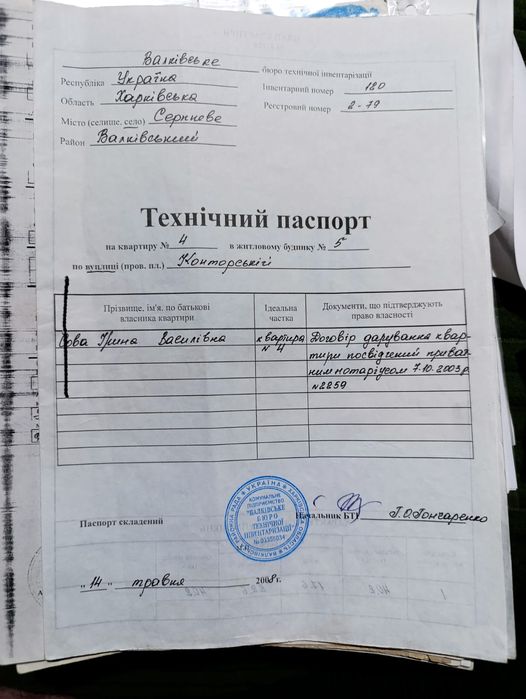 Валківське бюро технічної інвентаризації
Республіка Україна Інвентарний номер 120
Область Харківська Реєстровий номер 2-79
Місто (селище, село) Серпневе
Район Валківський
Технічний паспорт
на квартиру № 4 в житловому будинку № 5
по вулиці (пров. пл.) Конторській
Прізвище, ім'я, по батькові власника квартири
Ідеальна частка
Документи, що підтверджують право власності
Ірина Василівна
квартира № 4
Договір дарування квар-
тири посвідчений приват-
ним нотаріусом 7.10.2003р.
№2259
УКРАЇНА
КОМУНАЛЬНЕ
ПІДПРИЄМСТВО
"ВАЛКІВСЬКЕ
БЮРО
ТЕХНІЧНОЇ
ІНВЕНТАРИЗАЦІЇ"
Паспорт складений Начальник БТІ Гончаренко
"14" травня 2008р.